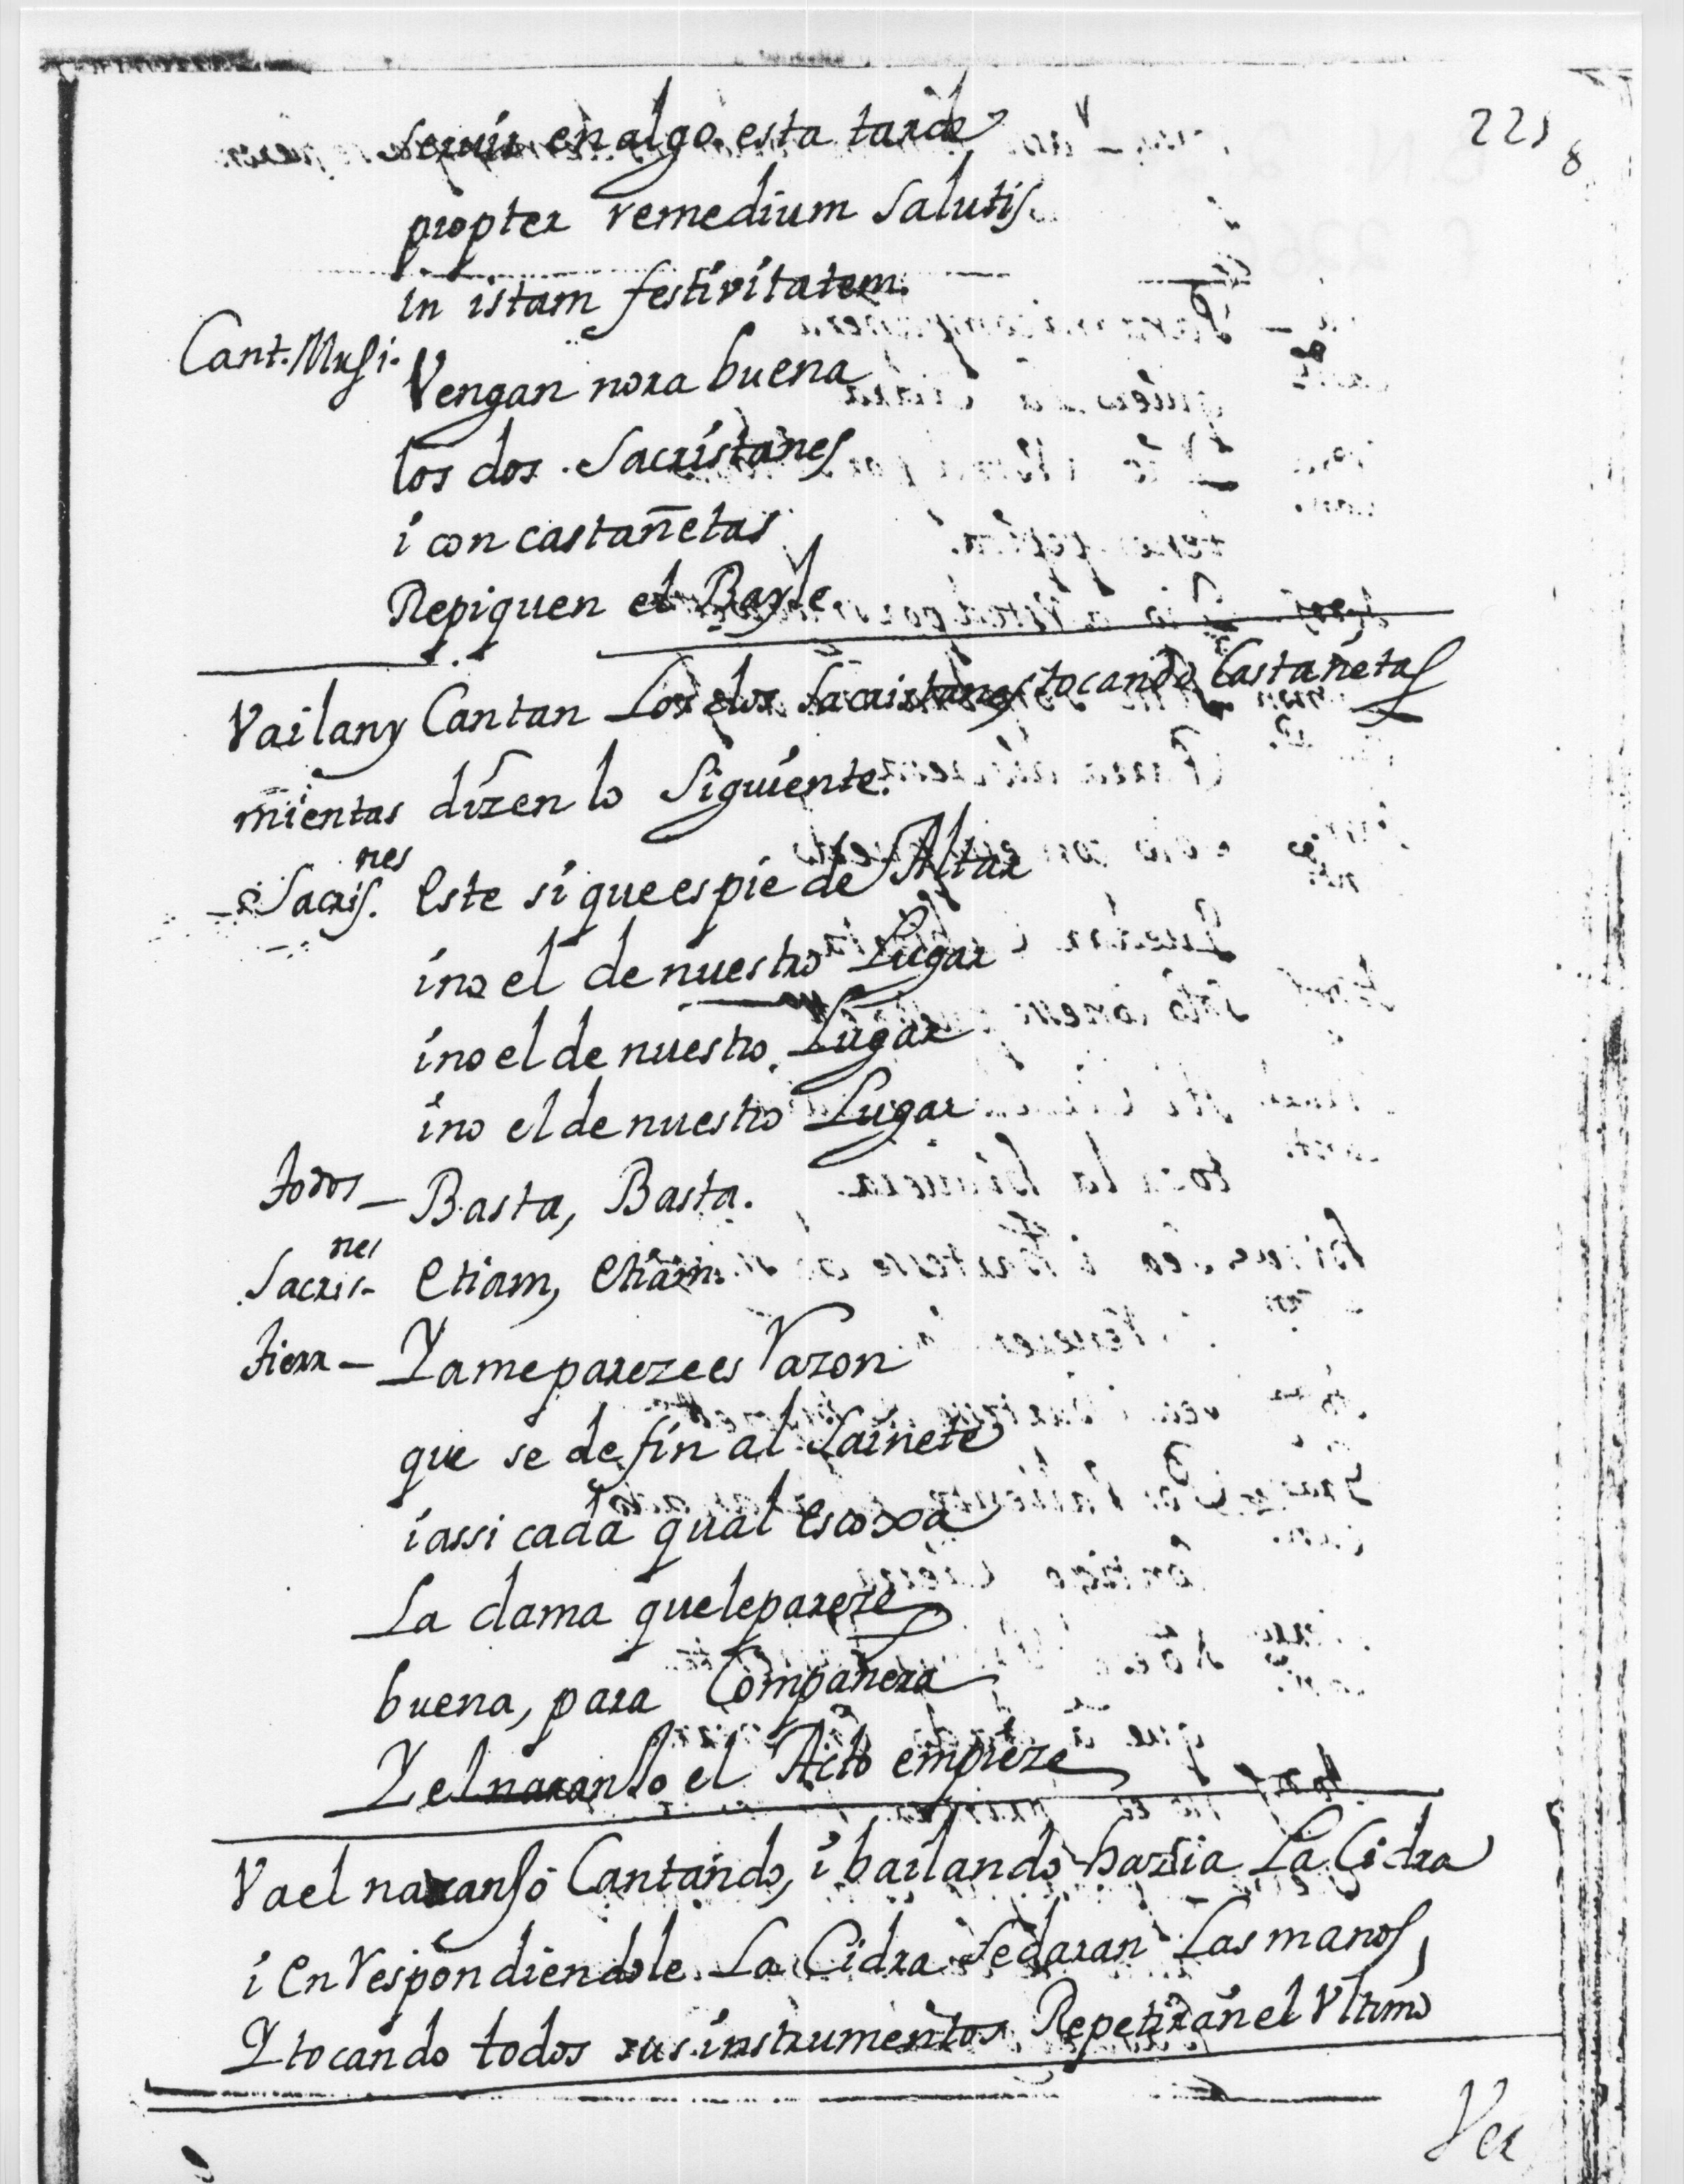 221
8
servir en algo esta tarde
propter remedium salutis
in istam festivitatem.
Cant. Musi. Vengan nora buena
los dos Sacristanes
i con castañetas
Repiquen el Bayle
Vailany Cantan Los dos Sacristanes tocando Castañetas
mientas dizen lo Siguiente.
Sacris.nes Este si que es pie de Altar
i no el de nuestro Lugar
i no el de nuestro Lugar
i no el de nuestro Lugar
todos — Basta, Basta.
Sacris.nes Etiam, Etiam.
tierr — Ya me pareze es razon
que se de fin al Sainete
i assi cada qual escoxa
La dama que le pareze
buena, para Compañera
Y el naranso el Acto empieze
Va el naranso Cantando, i bailando hazia La Cidra
i en respondiendole La Cidra se daran Las manos,
Y tocando todos sus instrumentos Repetiran el Vltimo
Ver